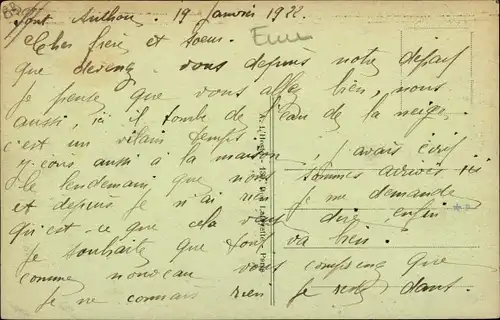 Pont Authou. 19 Janvier 1922
Cher frère et soeur.
que devenez vous depuis notre départ
je pense que vous allez bien, nous
aussi, ici il tombe de l'eau de la neige.
c'est un vilain temps
j'avais écrit
aussi à la maison
le lendemain que nous sommes ici
et depuis je n'ai rien je me demande
qu'est-ce que cela veut dire, enfin
je souhaite que tout va bien.
comme nouveau vous que
je ne connais rien je